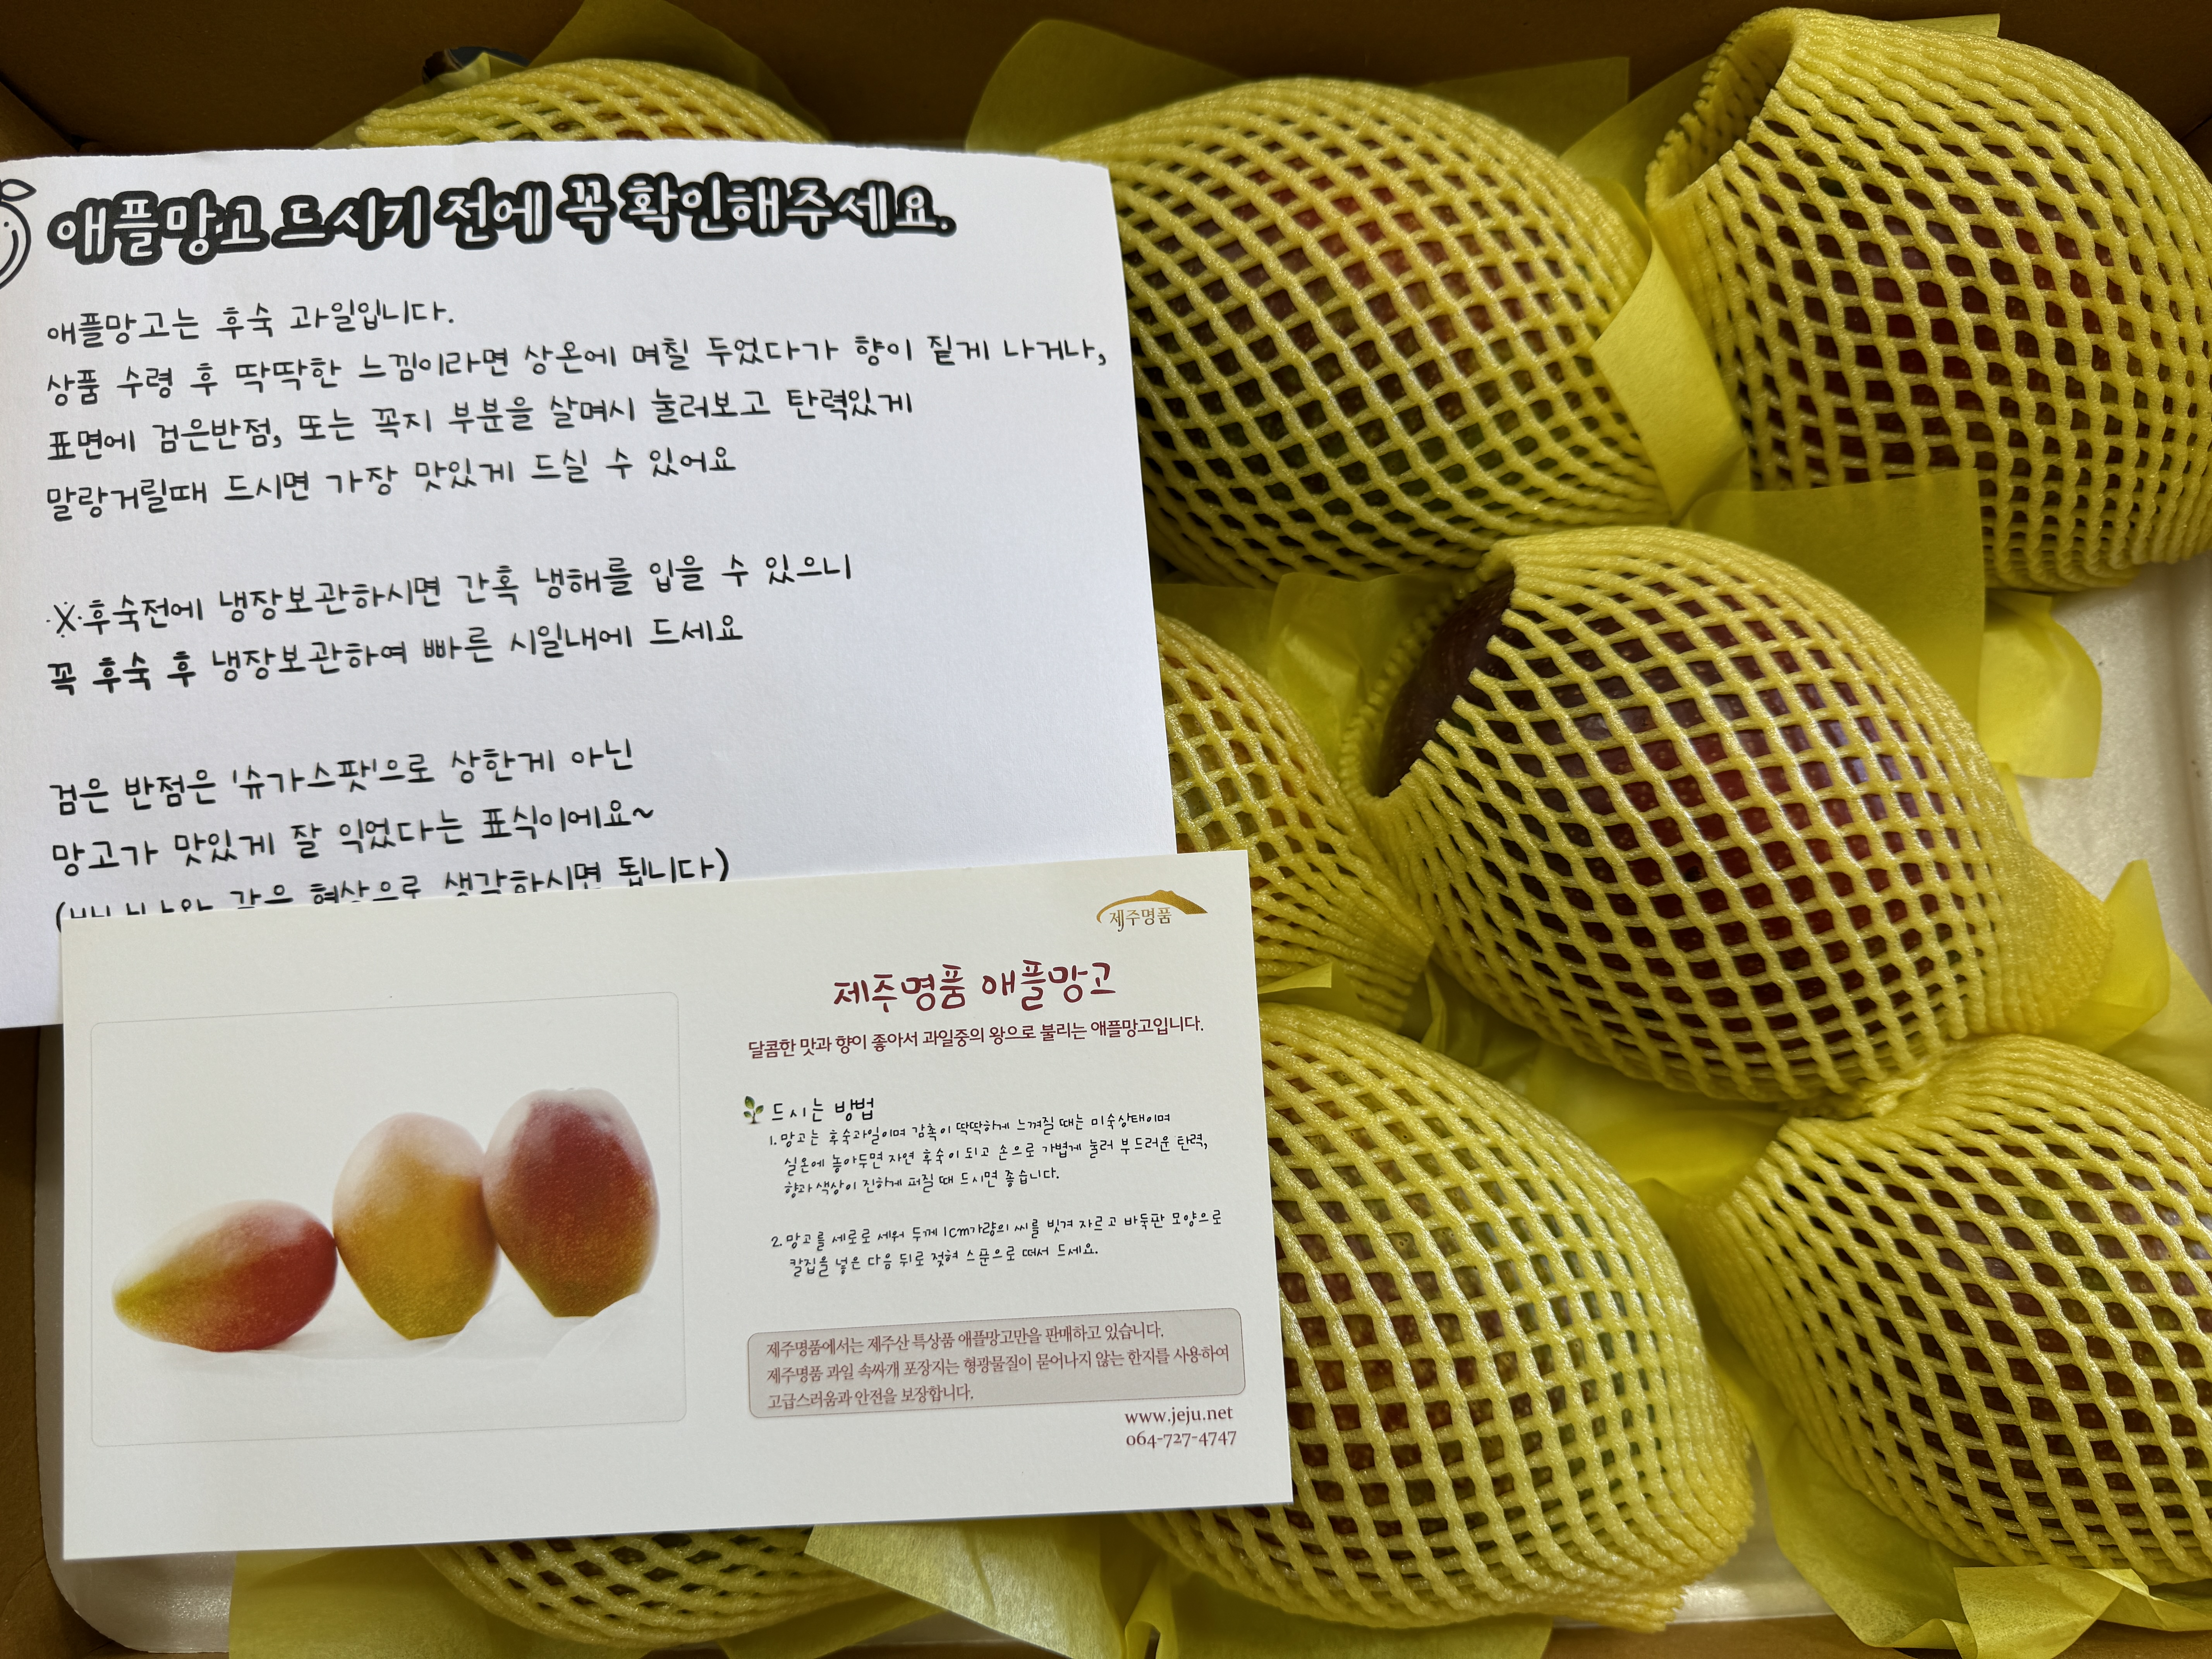 애플망고 드시기 전에 꼭 확인해주세요.
애플망고는 후숙 과일입니다.
상품 수령 후 딱딱한 느낌이라면 상온에 며칠 두었다가 향이 짙게 나거나,
표면에 검은반점, 또는 꼭지 부분을 살며시 눌러보고 탄력있게
말랑거릴때 드시면 가장 맛있게 드실 수 있어요
※후숙전에 냉장보관하시면 간혹 냉해를 입을 수 있으니
꼭 후숙 후 냉장보관하여 빠른 시일내에 드세요
검은 반점은 '슈가스팟'으로 상한게 아닌
망고가 맛있게 잘 익었다는 표식이에요~
(바나나와 같은 현상으로 생각하시면 됩니다)
제주명품
제주명품 애플망고
달콤한 맛과 향이 좋아서 과일중의 왕으로 불리는 애플망고입니다.
드시는 방법
1. 망고는 후숙과일이며 감촉이 딱딱하게 느껴질 때는 미숙상태이며
실온에 놓아두면 자연 후숙이 되고 손으로 가볍게 눌러 부드러운 탄력,
향과 색상이 진하게 퍼질 때 드시면 좋습니다.
2. 망고를 세로로 세워 두께 1cm가량의 씨를 빗겨 자르고 바둑판 모양으로
칼집을 넣은 다음 뒤로 젖혀 스푼으로 떠서 드세요.
제주명품에서는 제주산 특상품 애플망고만을 판매하고 있습니다.
제주명품 과일 속싸개 포장지는 형광물질이 묻어나지 않는 한지를 사용하여
고급스러움과 안전을 보장합니다.
www.jeju.net
064-727-4747